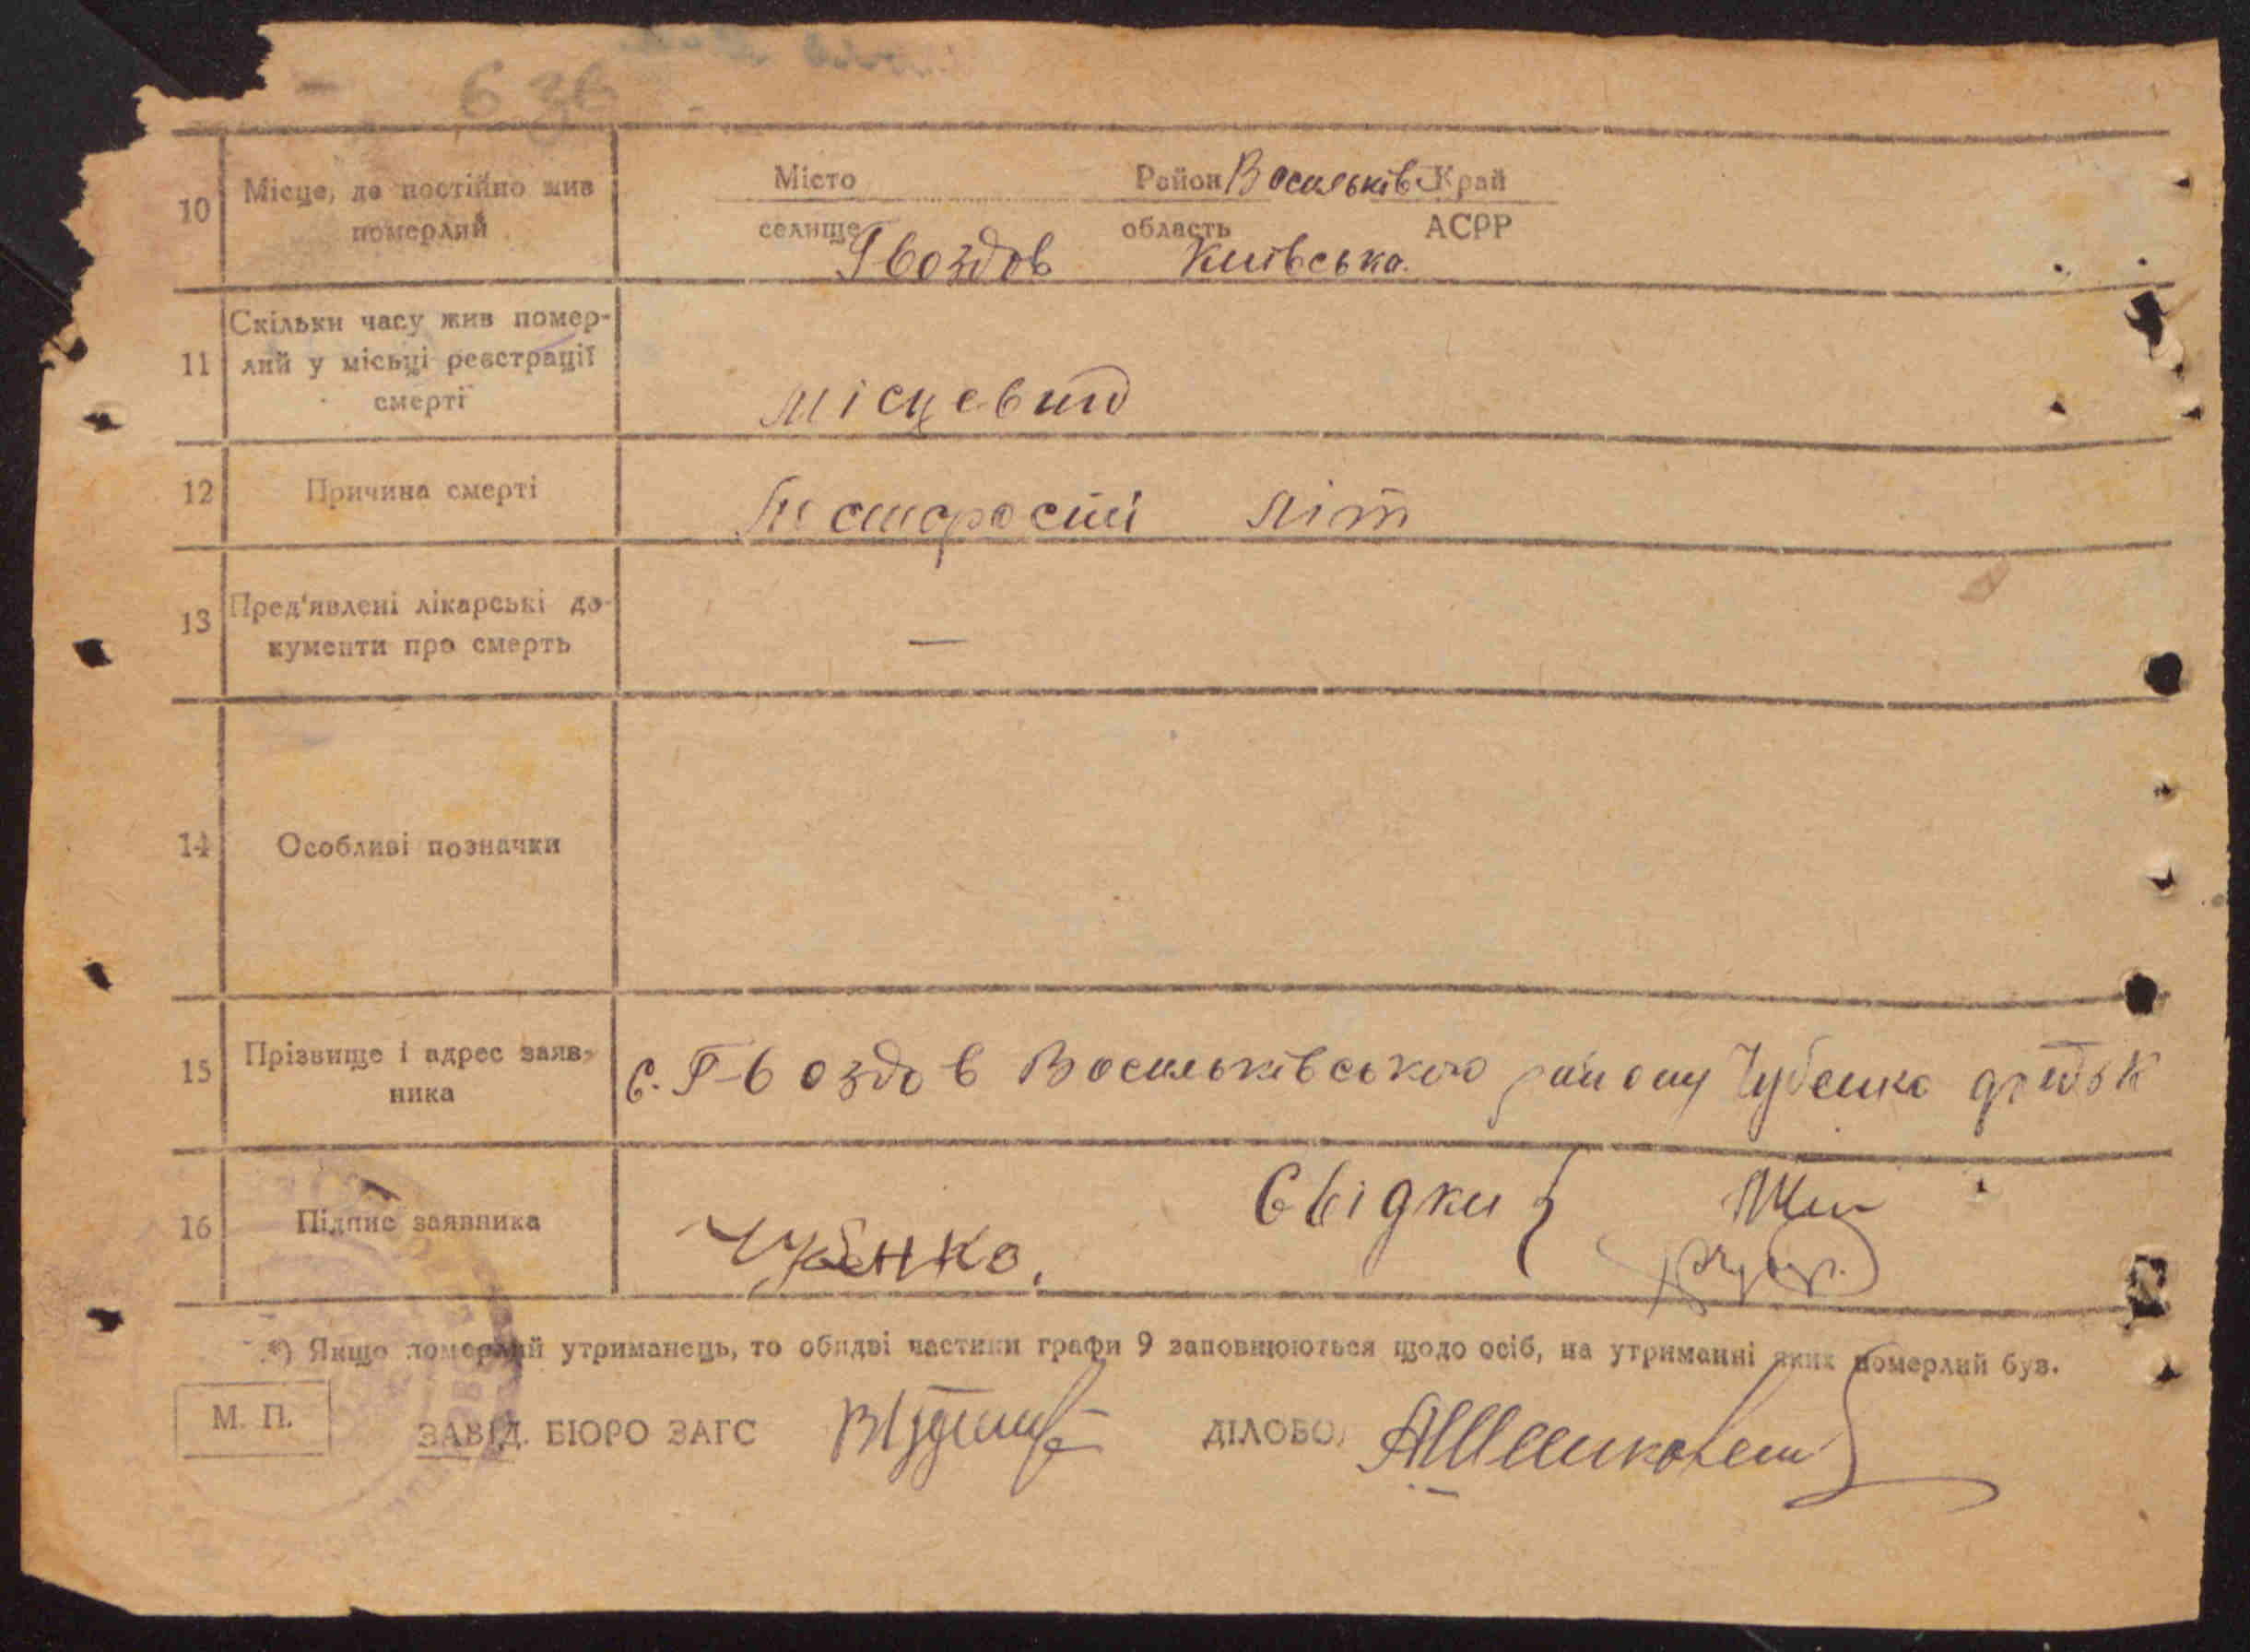 636
10 Місце, де постійно жив померлий
Місто Район Васильків Край
селище Гвоздов область Київська АСРР
11 Скільки часу жив помер-
лий у місьці реєстрації
смерті
місцевий
12 Причина смерті
По старості літ
13 Пред'явлені лікарські до-
кументи про смерть
—
14 Особливі позначки
15 Прізвище і адрес заяв-
ника
с. Гвоздов Васильківського району Чубенко
16 Підпис заявника
Чубенко.
Свідки {
*) Якщо померлий утриманець, то обидві частини графи 9 заповнюються щодо осіб, на утриманні яких померлий був.
М. П.
ЗАВІД. БЮРО ЗАГС
ДІЛОВОД